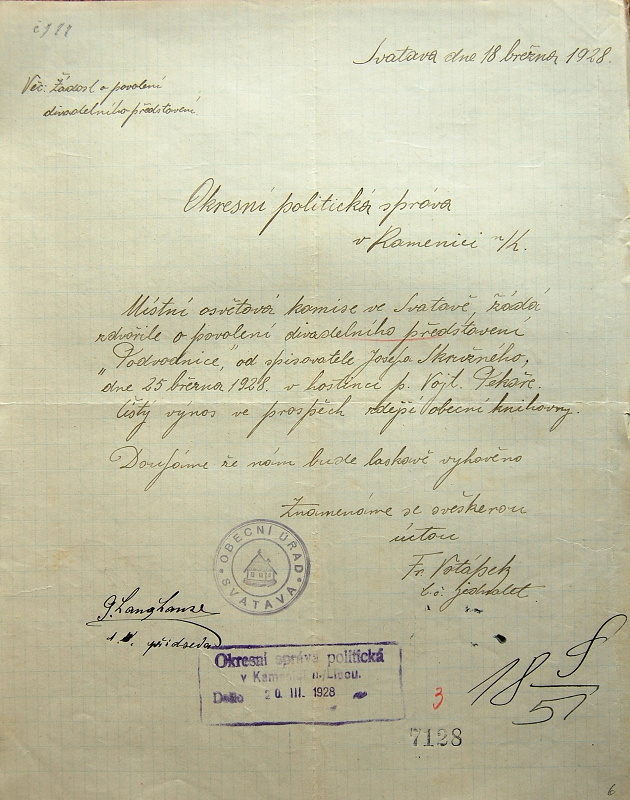 Svatava dne 18 března 1928.
Věc: Žádost o povolení
divadelního představení.
Okresní politická správa
v Kamenici n/L.
Místní osvětová komise ve Svatavě, žádá
zdvořile o povolení divadelního představení
"Podvodnice," od spisovatele Josefa Skružného,
dne 25 března 1928. v hostinci p. Vojt. Pekaře.
Čistý výnos ve prospěch zdejší obecní knihovny.
Doufáme že nám bude laskavě vyhověno
Znamenáme se sveškerou
úctou
OBECNÍ ÚŘAD
SVATAVA
Fr.
t. č. jednatel
J. Langhans
předseda
Okresní správa politická
v Kamenici n./Lipou.
Došlo 20. III. 1928
3
18
51
7128
6